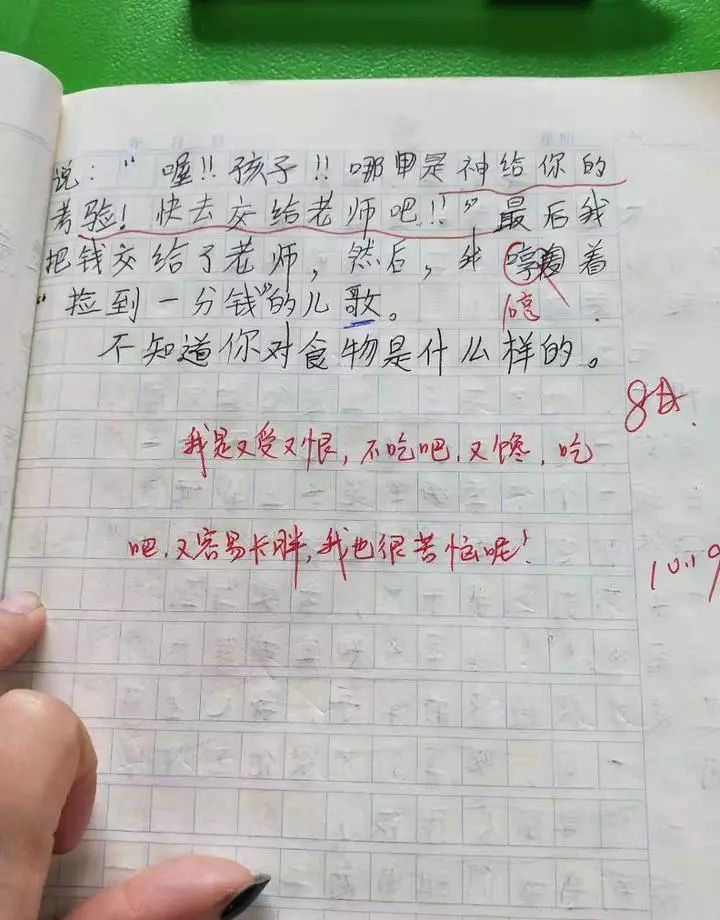 说：“喔!!孩子!!哪里是神给你的
考验!快去交给老师吧!!”最后我
把钱交给了老师，然后，我哼着
“捡到一分钱”的儿歌。
哼
不知道你对食物是什么样的。
我是又爱又恨，不吃吧，又馋，吃
吧，又容易卡胖，我也很苦恼呢！
10.19